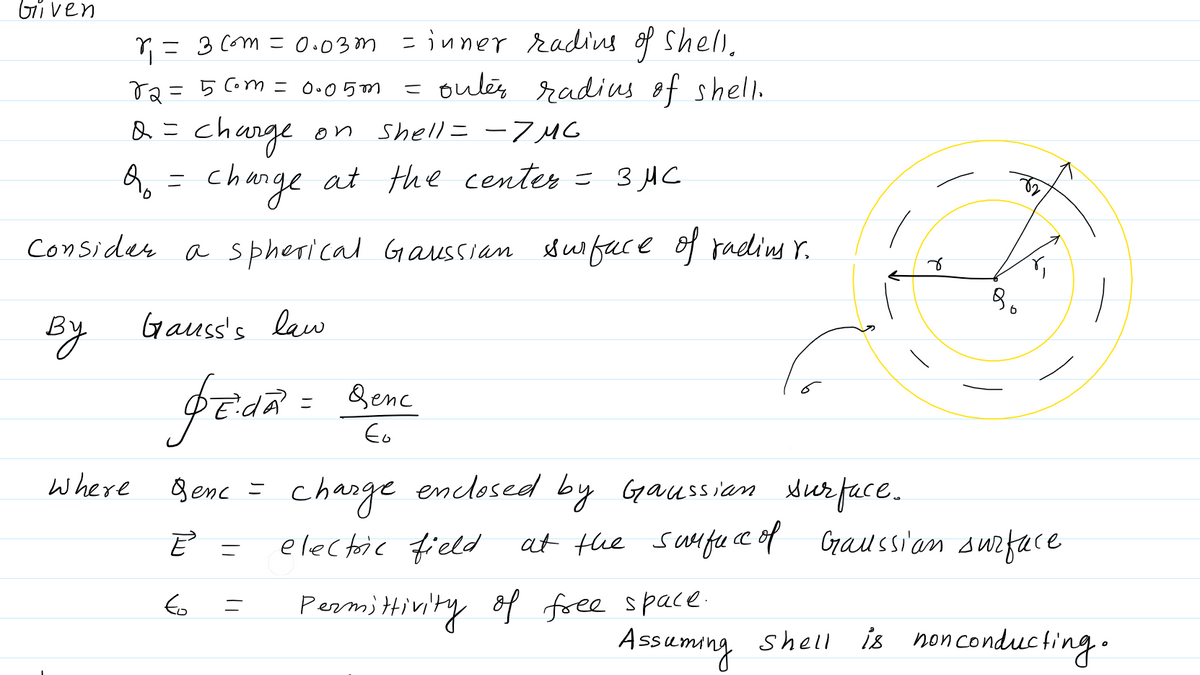 Given
r₁ = 3 cm = 0.03m = inner radius of shell.
r2 = 5 cm = 0.05m = outer radius of shell.
Q = charge on shell = -7 μC
Q₀ = charge at the center = 3 μC
Consider a spherical Gaussian surface of radius r.
r2
r
r₁
Q₀
σ
By Gauss's law
∮E⃗.dA⃗ = Qenc / ϵ₀
where Qenc = charge enclosed by Gaussian surface.
E⃗ = electric field at the surface of Gaussian surface
ϵ₀ = Permittivity of free space.
Assuming shell is nonconducting.